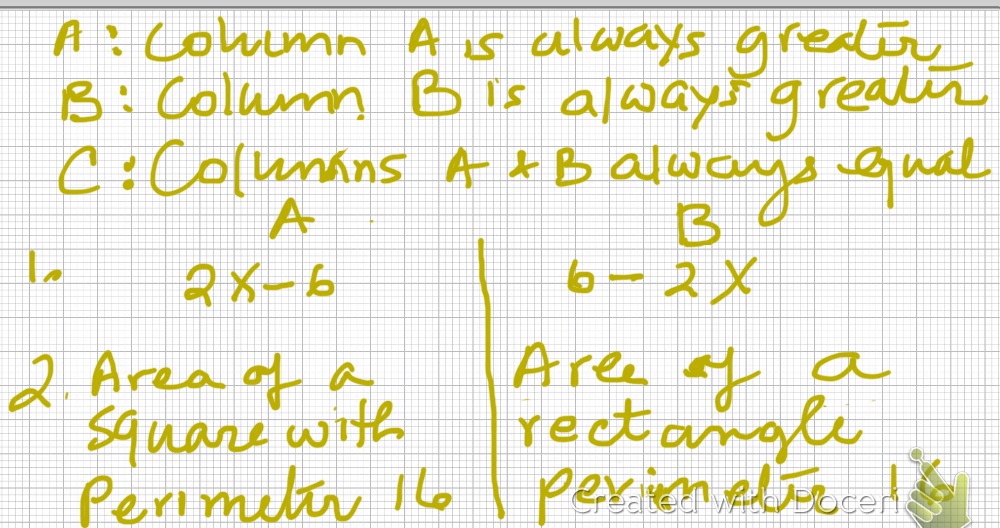 A: Column A is always greater
B: Column B is always greater
C: Columns A + B always equal
A B
1. 2X-6 6-2X
2. Area of a Area of a
square with rectangle
Perimeter 16 perimeter 16
Created with Doceri